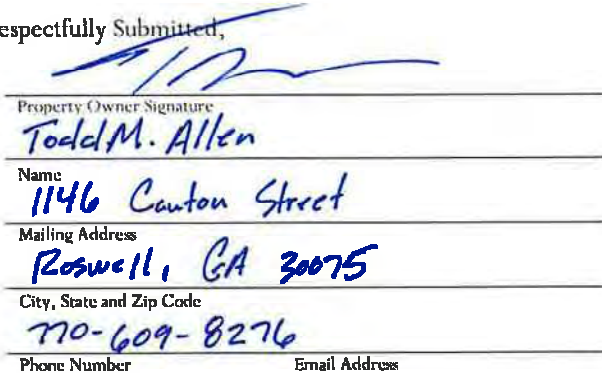 espectfully Submitted,
Property Owner Signature
Todd M. Allen
Name
1146 Canton Street
Mailing Address
Roswell, GA 30075
City, State and Zip Code
770-609-8276
Phone Number Email Address